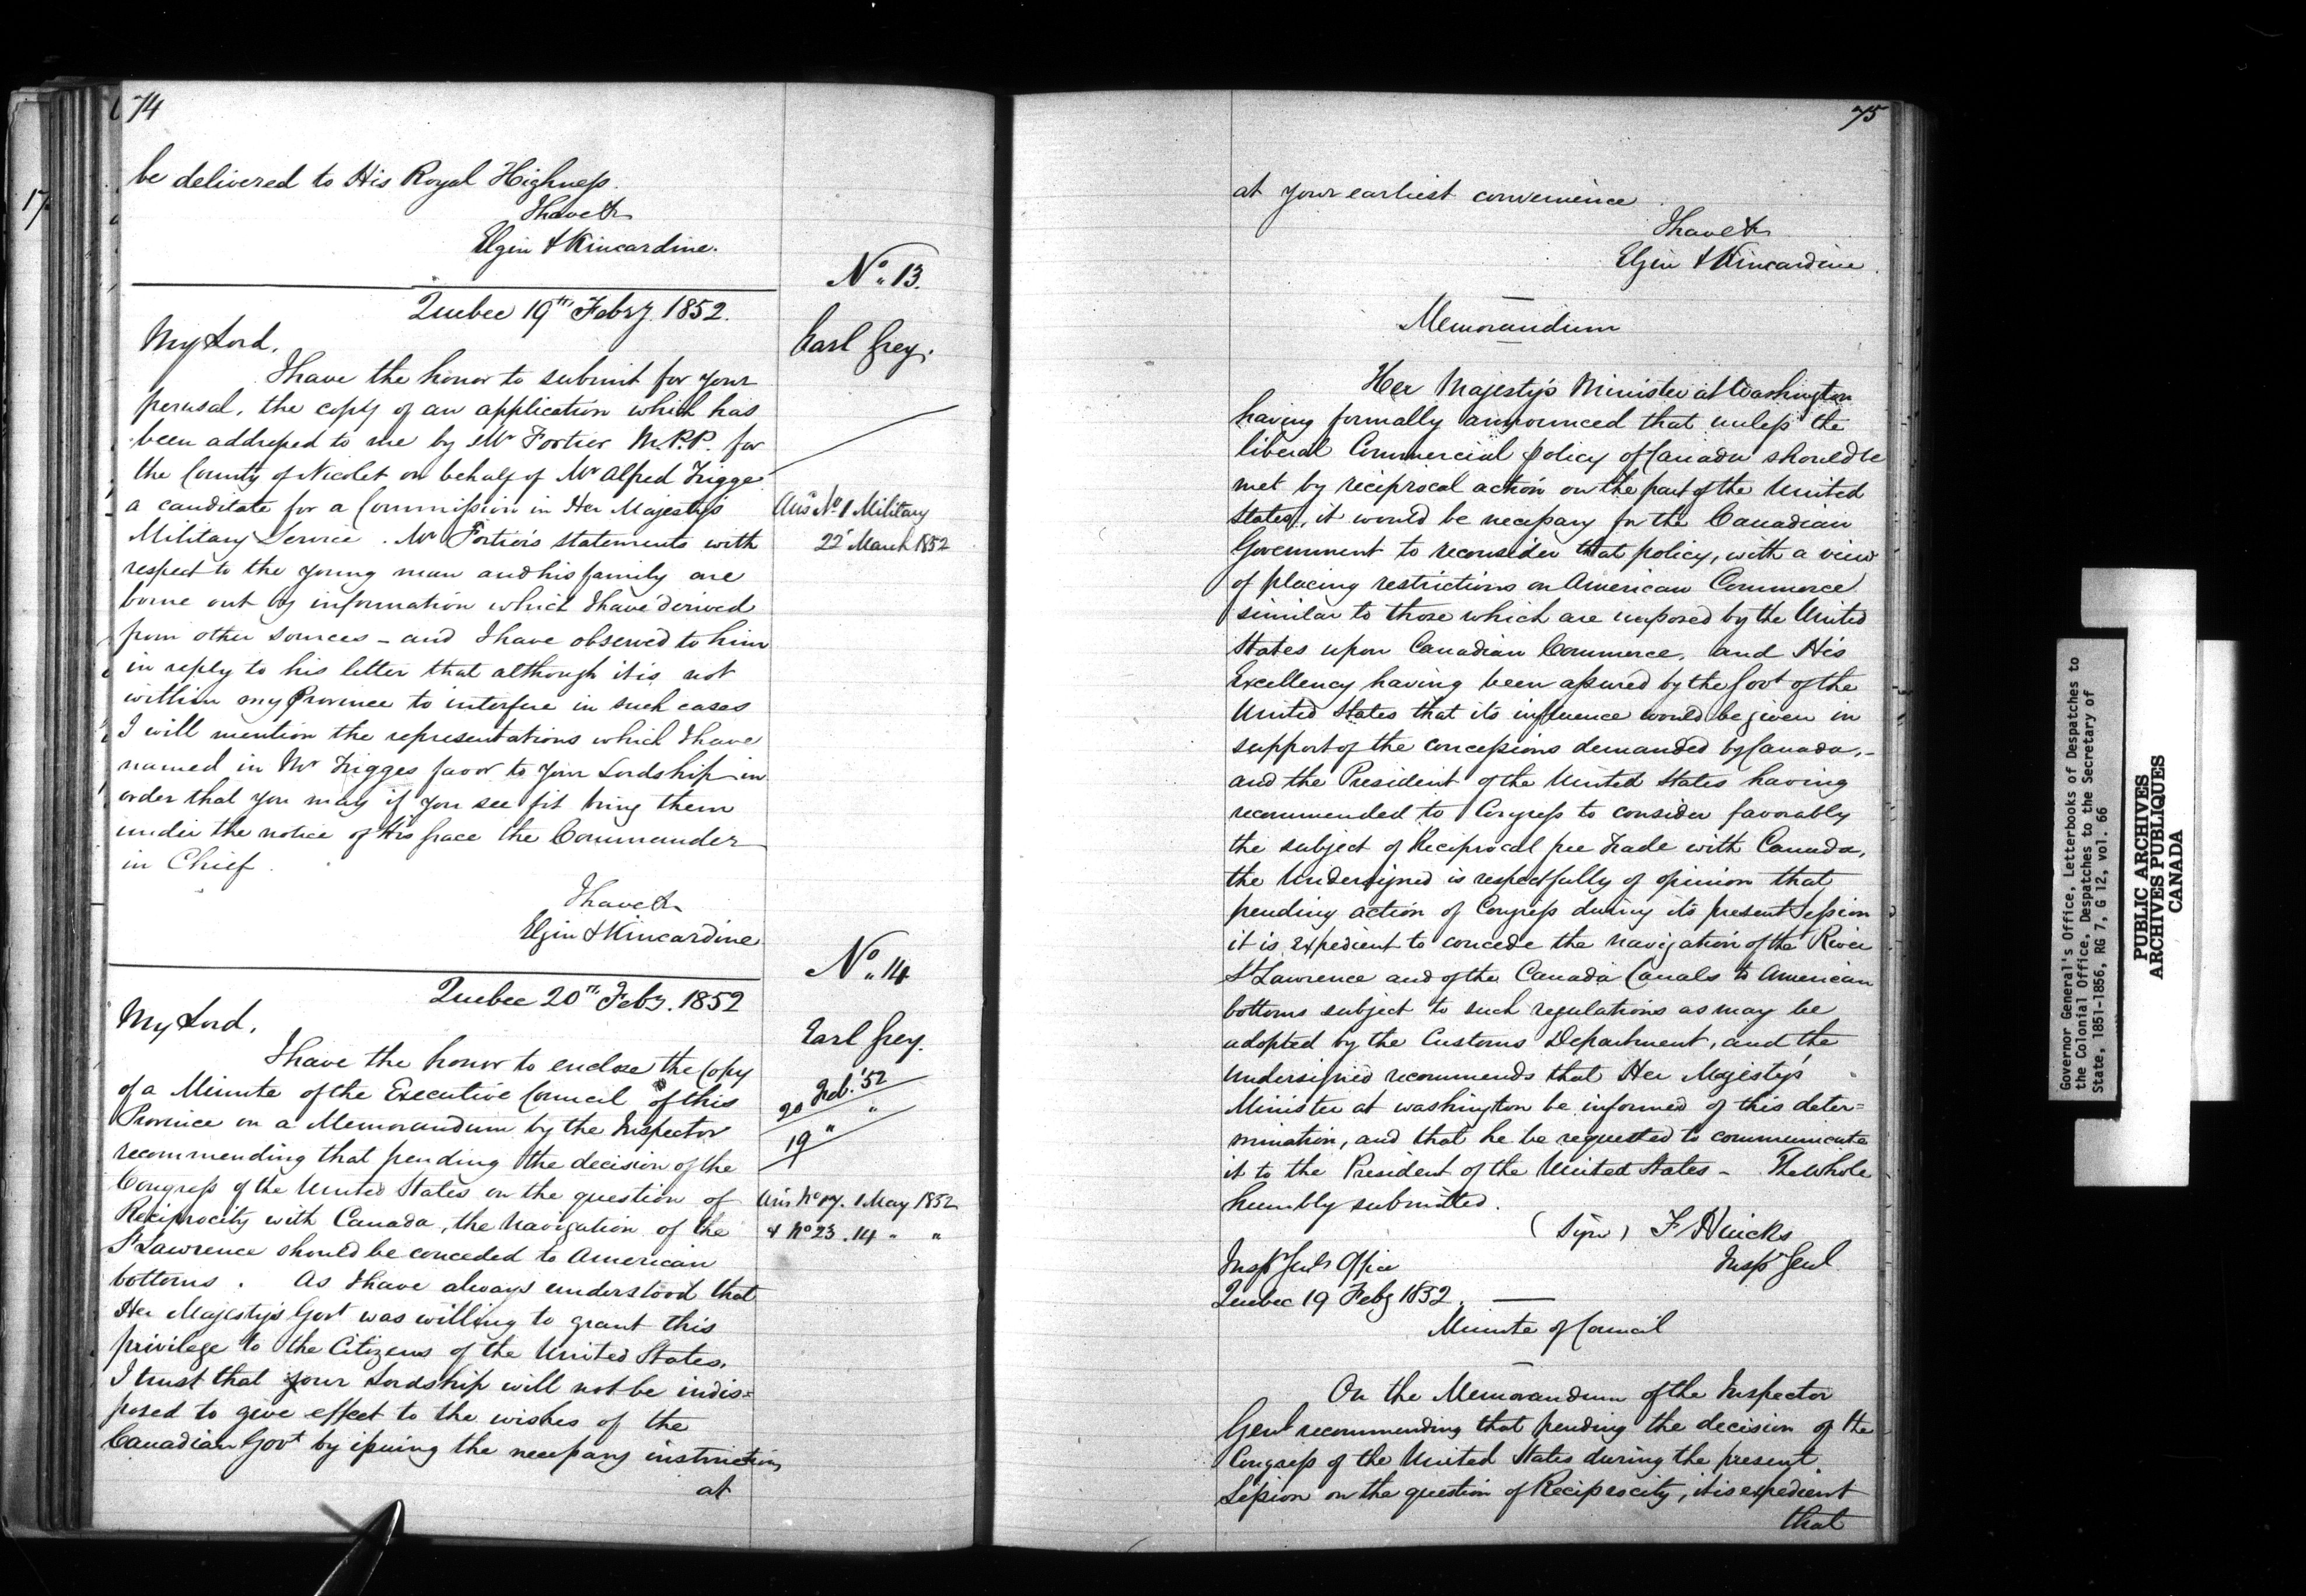 74
be delivered to His Royal Highness.
I have &c
Elgin & Kincardine.
No. 13.
Quebec 19th Feby. 1852.
Earl Grey.
My Lord,
I have the honor to submit for your
perusal, the copy of an application which has
been addressed to me by Mr Fortier M.P.P. for
the County of Nicolet on behalf of Mr Alfred Trigge
a canditate for a Commission in Her Majesty's
Military Service. Mr Fortier's statements with
Ans No. 1 Military
22 March 1852
respect to the young man and his family are
borne out by information which I have derived
from other sources - and I have observed to him
in reply to his letter that although it is not
within my Province to interfere in such cases
I will mention the representations which I have
named in Mr Trigges favor to your Lordship in
order that you may if you see fit bring them
under the notice of His Grace the Commander
in Chief.
I have &c
Elgin & Kincardine
No. 14
Quebec 20th Feby. 1852
Earl Grey.
My Lord,
I have the honor to enclose the Copy
of a Minute of the Executive Council of this
Province on a Memorandum by the Inspector
recommending that pending the decision of the
20 Feb. '52 "
19 "
Congress of the United States on the question of
Reciprocity with Canada, the navigation of the
St Lawrence should be conceded to American
Ans No 17. 1 May 1852
& No 23. 14 " "
bottoms. As I have always understood that
Her Majesty's Govt was willing to grant this
privilege to the Citizens of the United States,
I trust that your Lordship will not be indis=
posed to give effect to the wishes of the
Canadian Govt by issuing the necessary instructions
at
75
at your earliest convenience
I have &c
Elgin & Kincardine.
Memorandum
Her Majesty's Minister at Washington
having formally announced that unless the
liberal Commercial policy of Canada should be
met by reciprocal action on the part of the United
States, it would be necessary for the Canadian
Government to reconsider that policy, with a view
of placing restrictions on American Commerce
similar to those which are imposed by the United
States upon Canadian Commerce, and His
Excellency having been assured by the Govt of the
United States that its influence would be given in
support of the concessions demanded by Canada,-
and the President of the United States having
recommended to Congress to consider favorably
the subject of Reciprocal free Trade with Canada,
the Undersigned is respectfully of opinion that
pending action of Congress during its present Session
it is expedient to concede the navigation of the River
St Lawrence and of the Canada Canals to American
bottoms subject to such regulations as may be
adopted by the Customs Department, and the
Undersigned recommends that Her Majesty's
Minister at washington be informed of this deter=
mination, and that he be requested to communicate
it to the President of the United States - The whole
humbly submitted.
(Sign) F Hincks
Insp Genl
Insp Genls Office
Quebec 19 Feby 1852.
Minute of Council
On the Memorandum of the Inspector
Genl recommending that pending the decision of the
Congress of the United States during the present
Session on the question of Reciprocity, it is expedient
that
Governor General's Office, Letterbooks of Despatches to
the Colonial Office, Despatches to the Secretary of
State, 1851-1856, RG 7, G 12, vol. 66
PUBLIC ARCHIVES
ARCHIVES PUBLIQUES
CANADA